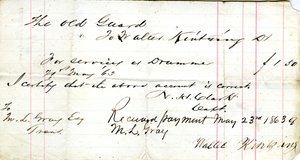 The Old Guard
To Walter Kintzing Dr
For services as Drummer $1.50
29th May 63
I certify that the above account is correct
N. H. Clark
Capt.
To
M. L. Gray Esq
Treas.
Received payment May 23rd 1863 of
M. L. Gray
Walter Kintzing